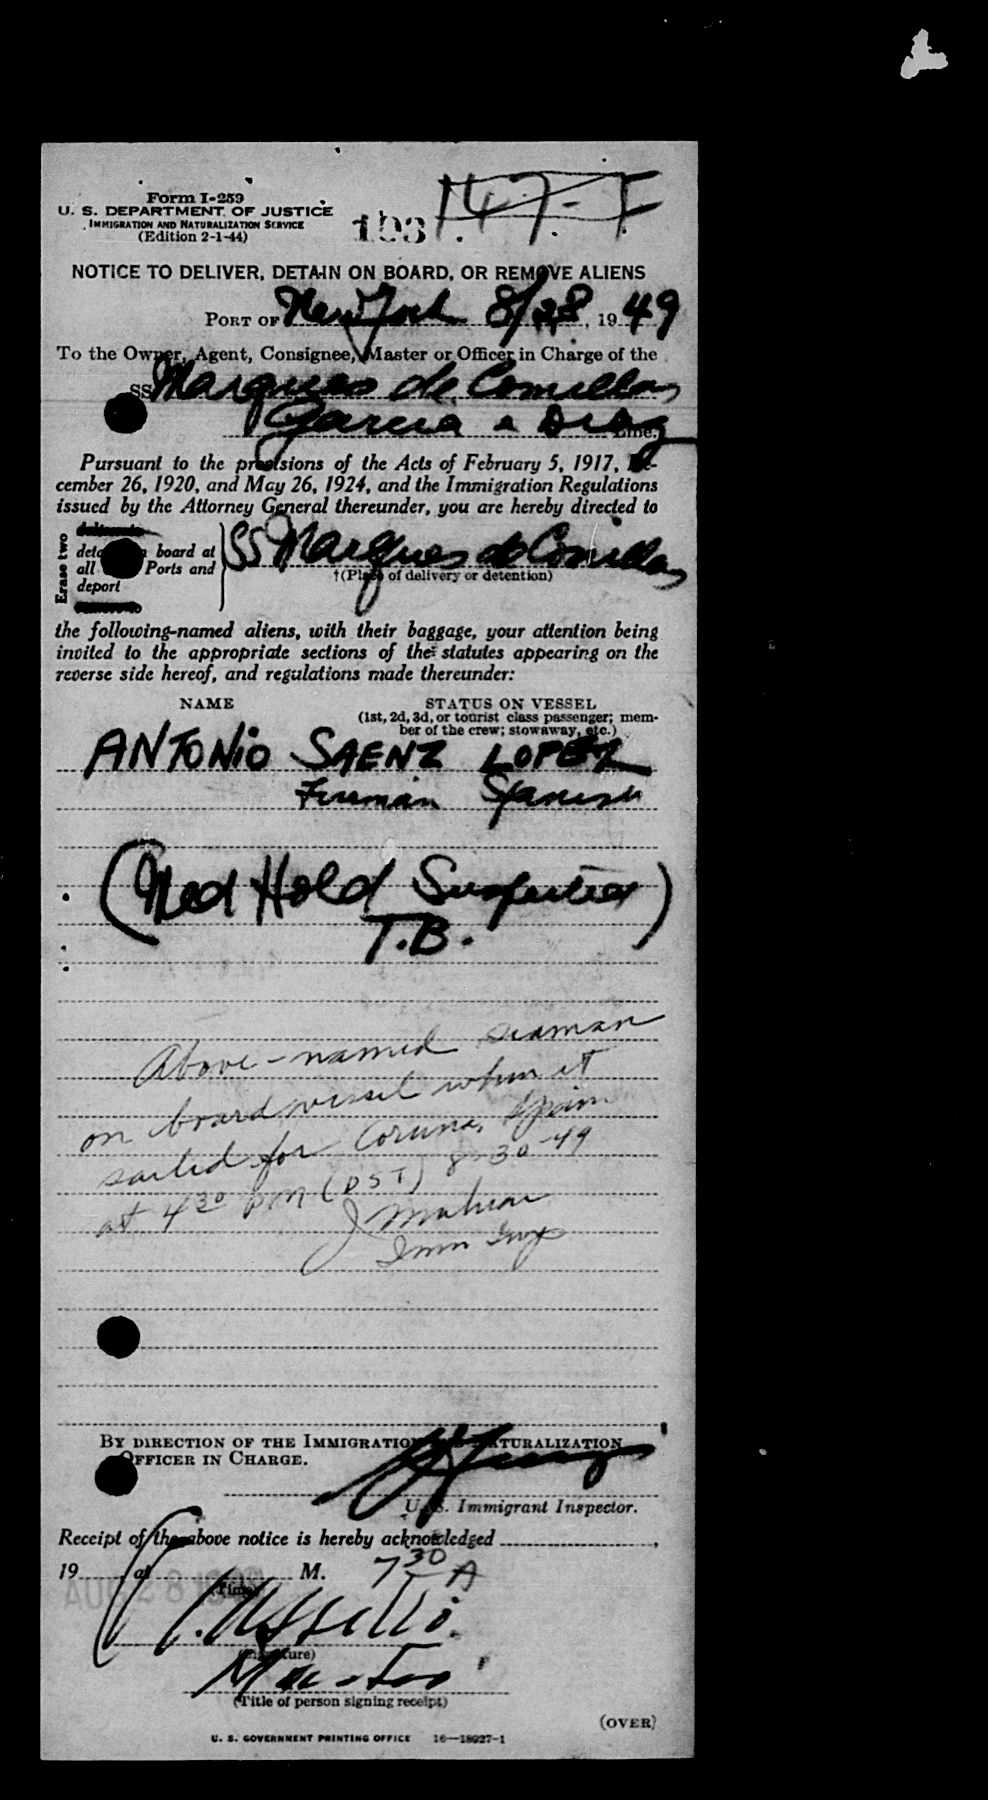 Form I-259
U. S. DEPARTMENT OF JUSTICE
IMMIGRATION AND NATURALIZATION SERVICE
(Edition 2-1-44)
193
147-F
NOTICE TO DELIVER, DETAIN ON BOARD, OR REMOVE ALIENS
PORT OF New York 8/28, 1949
To the Owner, Agent, Consignee, Master or Officer in Charge of the
SS Marques de Comillas
Garcia & Diaz Line.
Pursuant to the provisions of the Acts of February 5, 1917, De-
cember 26, 1920, and May 26, 1924, and the Immigration Regulations
issued by the Attorney General thereunder, you are hereby directed to
Erase two
board at
all Ports and
deport
SS Marques de Comillas
†(Place of delivery or detention)
the following-named aliens, with their baggage, your attention being
invited to the appropriate sections of the statutes appearing on the
reverse side hereof, and regulations made thereunder:
NAME STATUS ON VESSEL
(1st, 2d, 3d, or tourist class passenger; mem-
ber of the crew; stowaway, etc.)
ANTONIO SAENZ LOPEZ
Fireman Spanish
(Med Hold Suspected)
T.B.
Above-named seaman
on board vessel when it
sailed for Coruna, Spain
at 4 30 pm (DST) 8-30-49
Imm Insp
BY DIRECTION OF THE IMMIGRATION AND NATURALIZATION
OFFICER IN CHARGE.
U. S. Immigrant Inspector.
Receipt of the above notice is hereby acknowledged
19 at M. 7 30 A
AUG 28
(Time)
(Signature)
Master
(Title of person signing receipt)
(OVER)
U. S. GOVERNMENT PRINTING OFFICE 16—18927-1